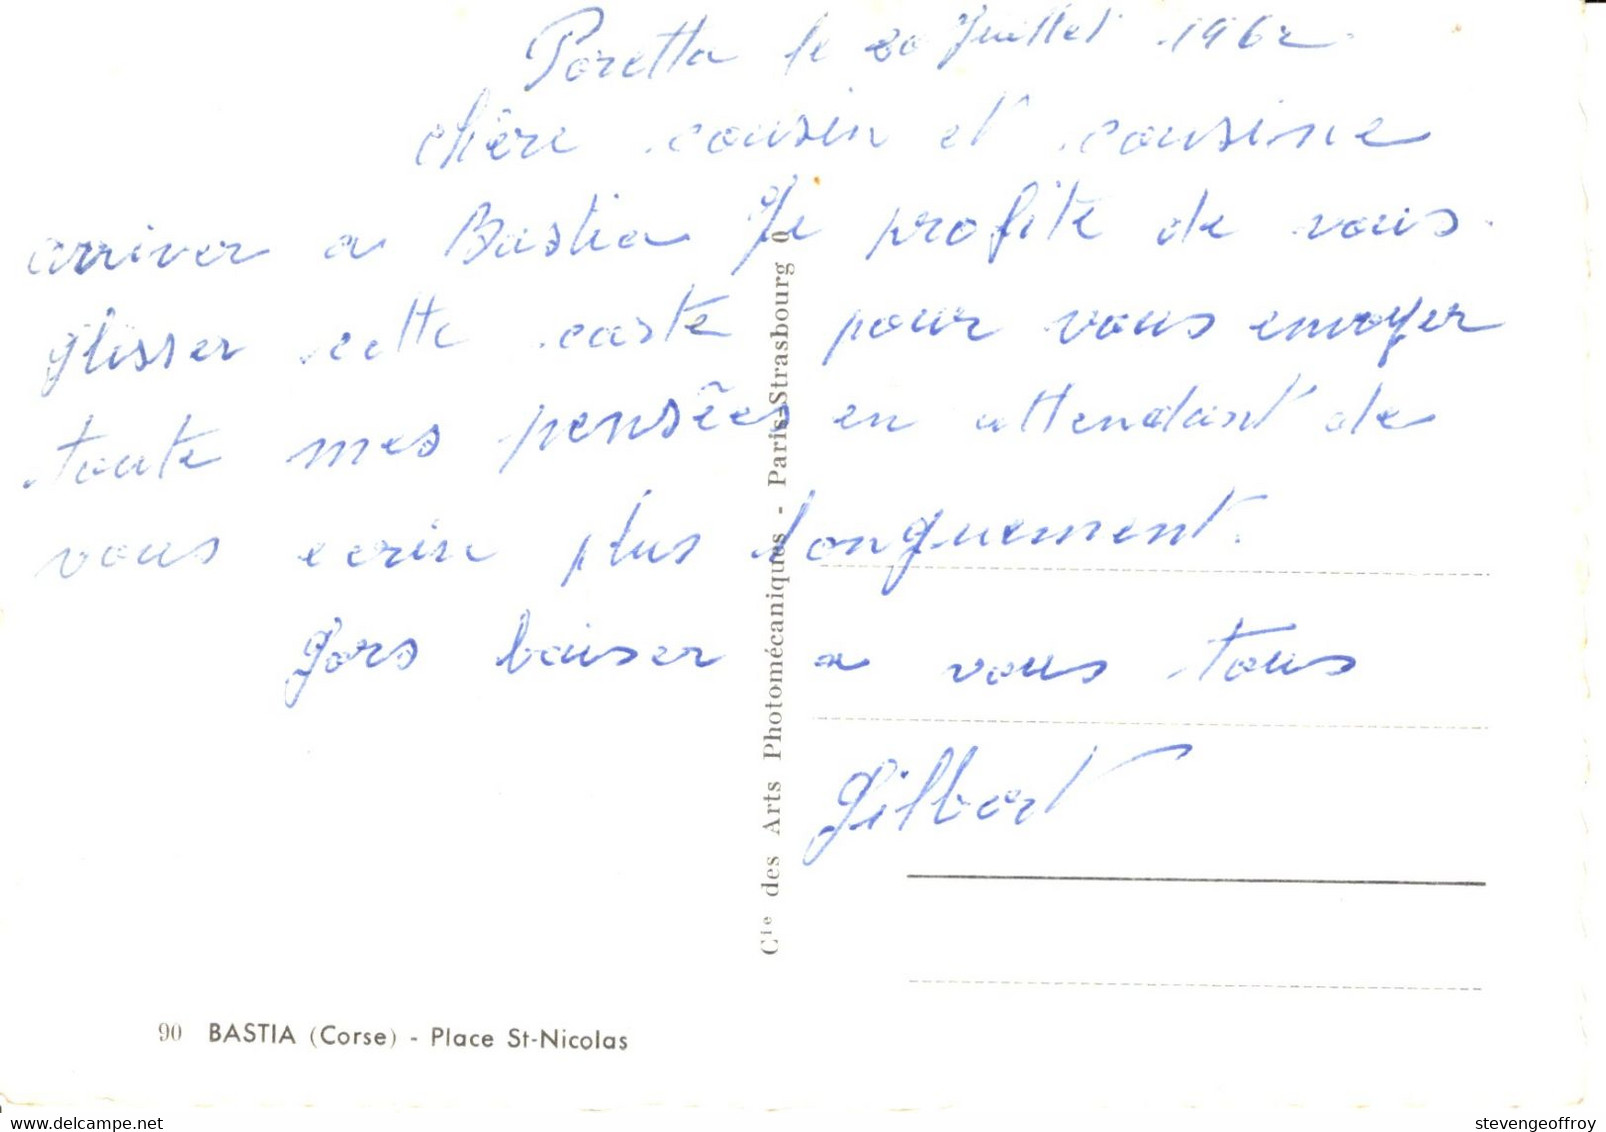 Poretta le 20 Juillet 1962
chère cousin et cousine
arriver a Bastia Je profite de vous
glisser cette carte pour vous envoyer
toute mes pensées en attendant de
vous ecrire plus longuement.
Gors baiser a vous tous
Gilbert
Cie des Arts Photomécaniques - Paris-Strasbourg 0
90 BASTIA (Corse) - Place St-Nicolas
stevengeoffroy